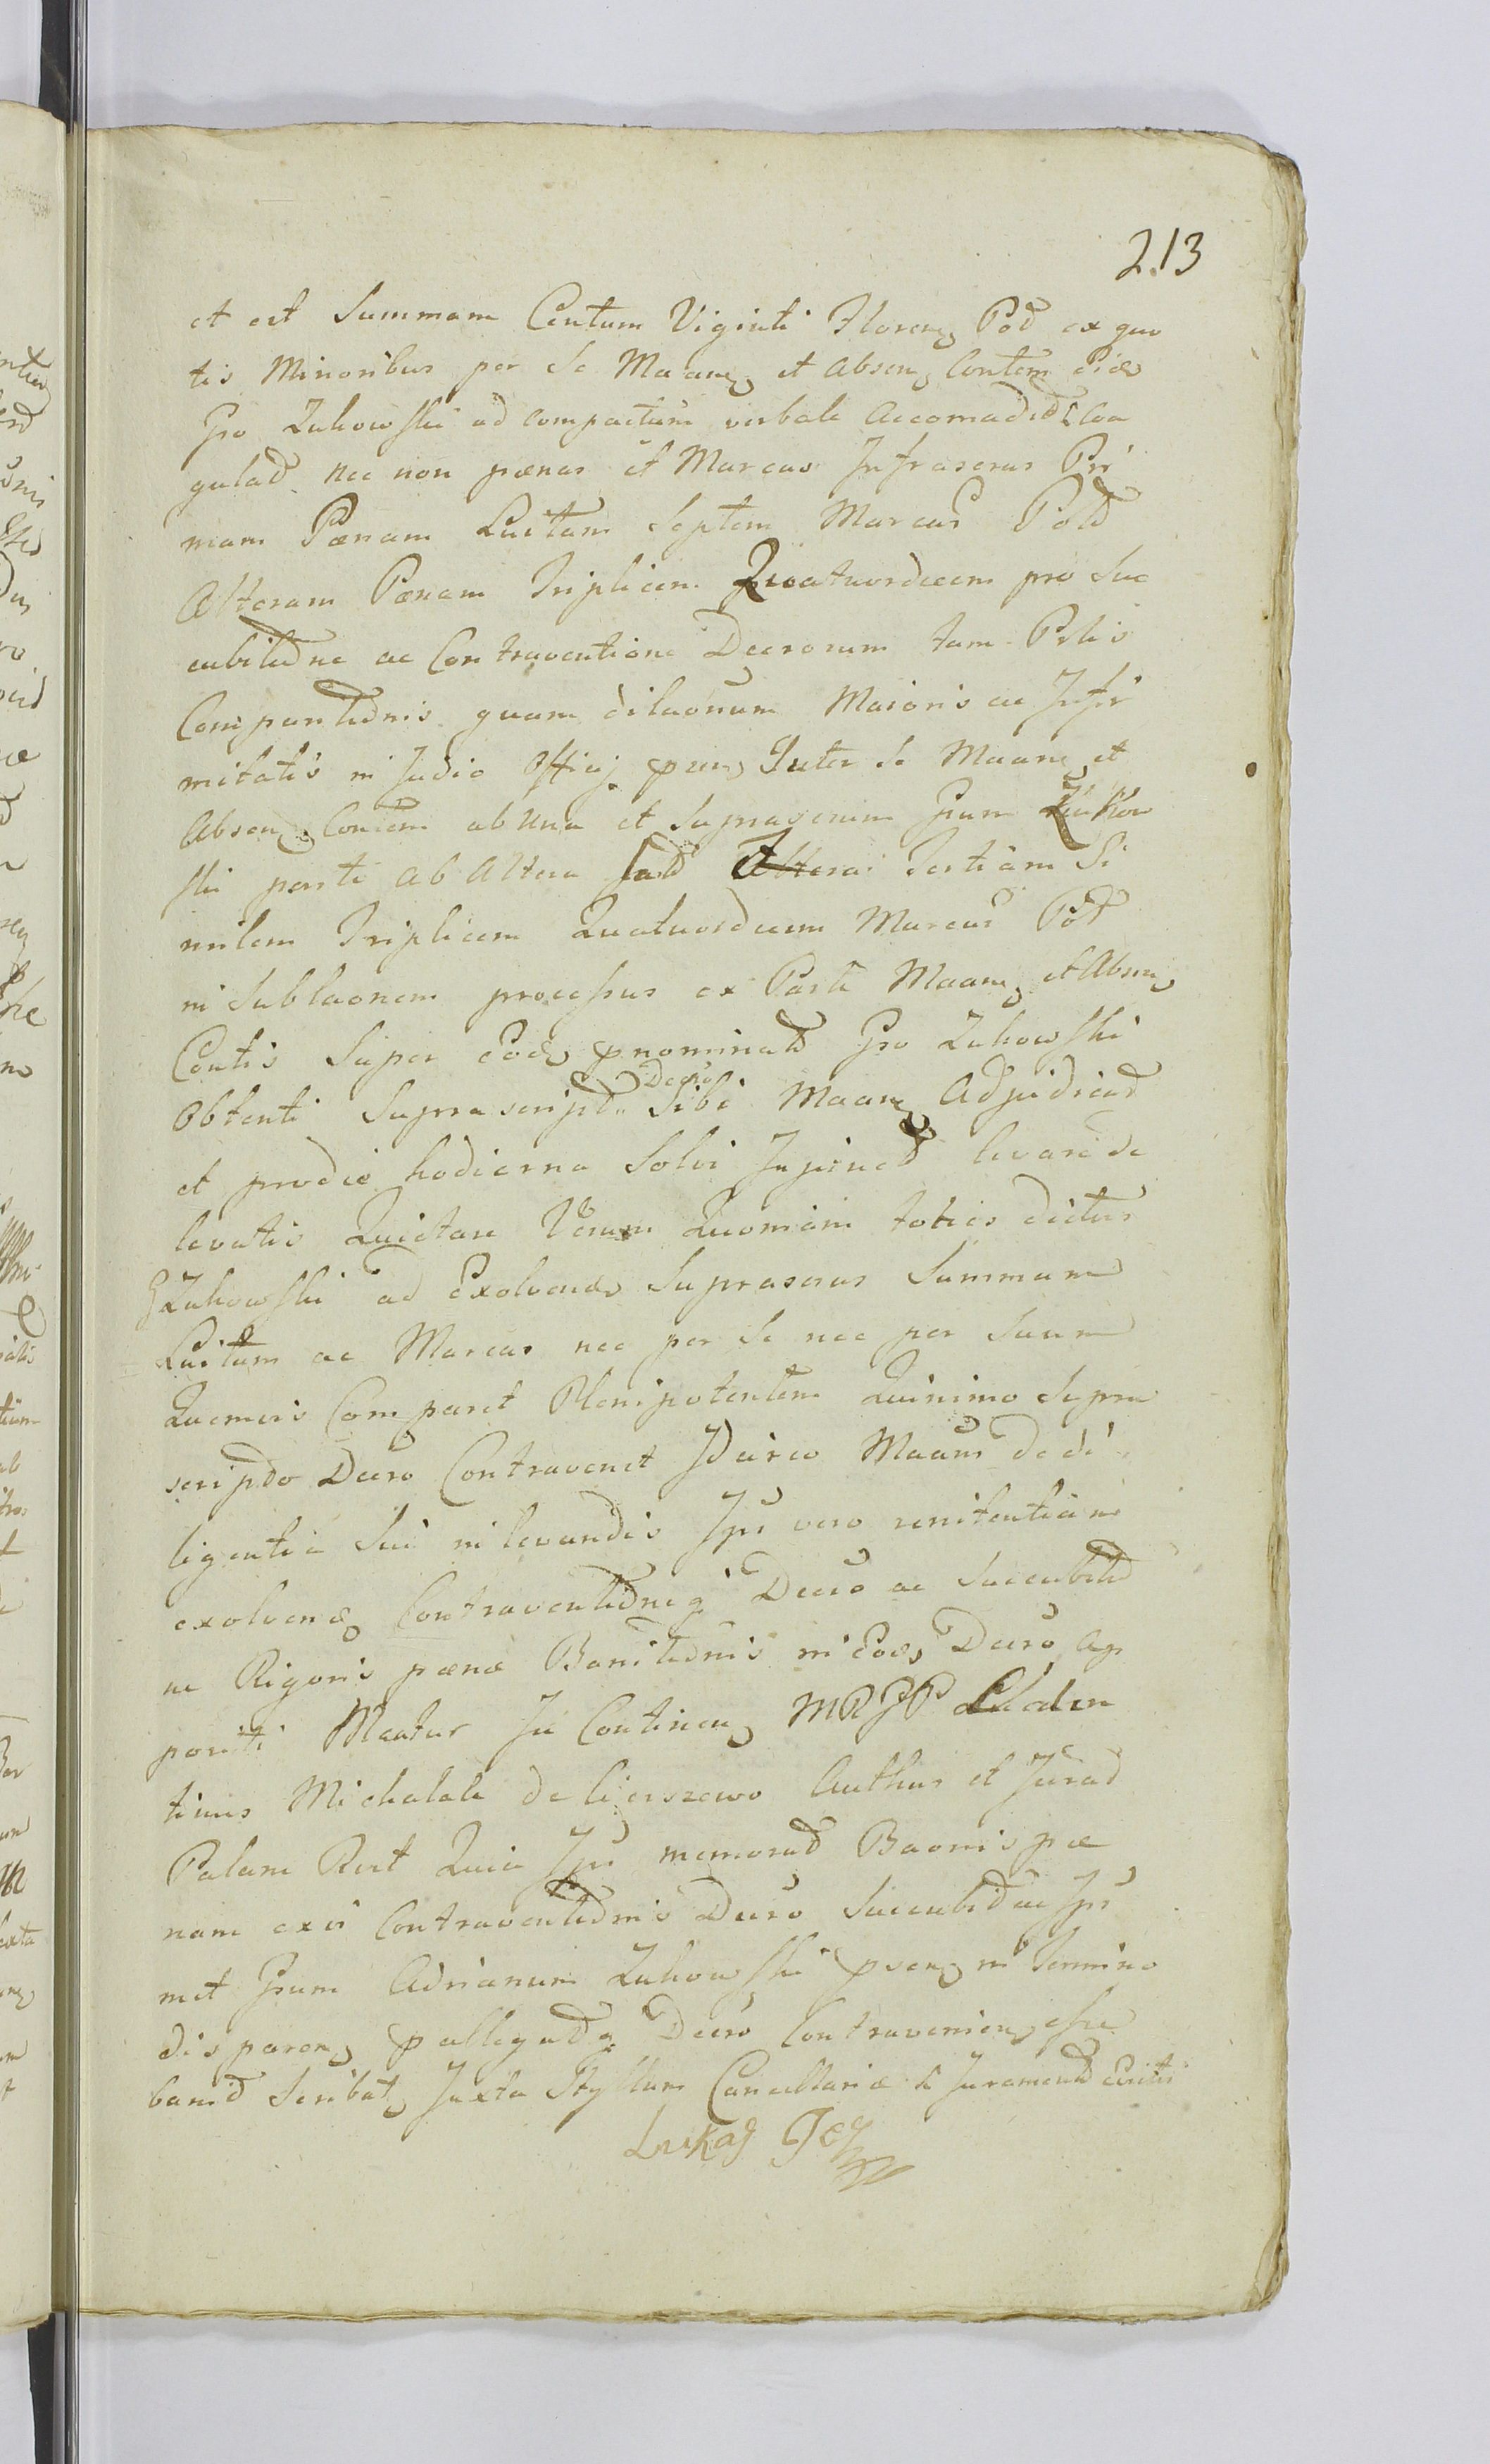 213
et est Summam Centum Viginti Floren, Pod ex quo
tis Minoribus per Se Maane, et Absen, Contem
Gso Zukowski ad compactum verbale Accomadtd Coa
gulad nec non pænas et Marcas Infrascras Pri
mam Pænam Luitam Septem Marcas Pold
Alteram Pænam Triplicem Quatuordecem pro Suc
cubitdne ac Contraventione Decrorum tam Ptlis
Comparitdnis quam dilaonum Maioris ac Infir
mitatis in Judio Officij pnn, Inter Se Maane, et
Absen, Contem ab Una et Suprascrium Gsum Zukow
ski parte ab Altera Latd Altera Tertiam Si
milem Triplicem Quatuordecem Marcas Pod
in Sublaonem processus ex Parte Maane, et Absen,
Contis Super Eod, pnominatd Gso Zukowski
Obtenti Suprascript. Decro Sibi Maane, Adjudicad
et prodie hodierna Solvi Injunctd levare de
levatis Quietare Verum Quoniam toties dictus
G Zukowski ad Exolvend, Suprascras Summam
Luitam ac Marcas nec per Se nec per Suum
Quemvis Comparet Plenipotentem Quinimo Supra
scripto Decro Contravenit Idcirco Maans de di
ligentia Sui in levandis Ipsi vero renitentiam
exolven, Contraventdneq Decro ac Succubitd
ne Rigoris pænæ Banitidnis in Eod, Decro Ap
positi Maatur In Continen, MRJP
tinus Michalak de Cierszewo Authus et Jurad
Palam Rect Quia Ipse memorad Baonis pæ
nam exvi Contraventidnis Decro Succubid ac Ipsi
met Gsum Adrianum Zukowski psen, in Termino
disparen, pallegatdq Decro Contravenien, esse
banid Scribat, Juxta Styllum Cancellariæ
Lukas